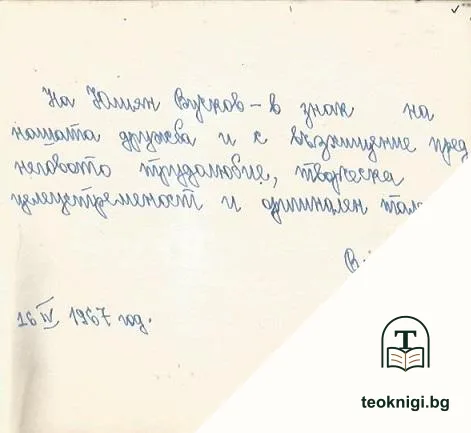 На Юлиян Вучков – в знак на
нашата дружба и с възхищение пред
неговото трудолюбие, творческа
целеустременост и оригинален тал
В.
16 IV 1967 год.
T
teoknigi.bg